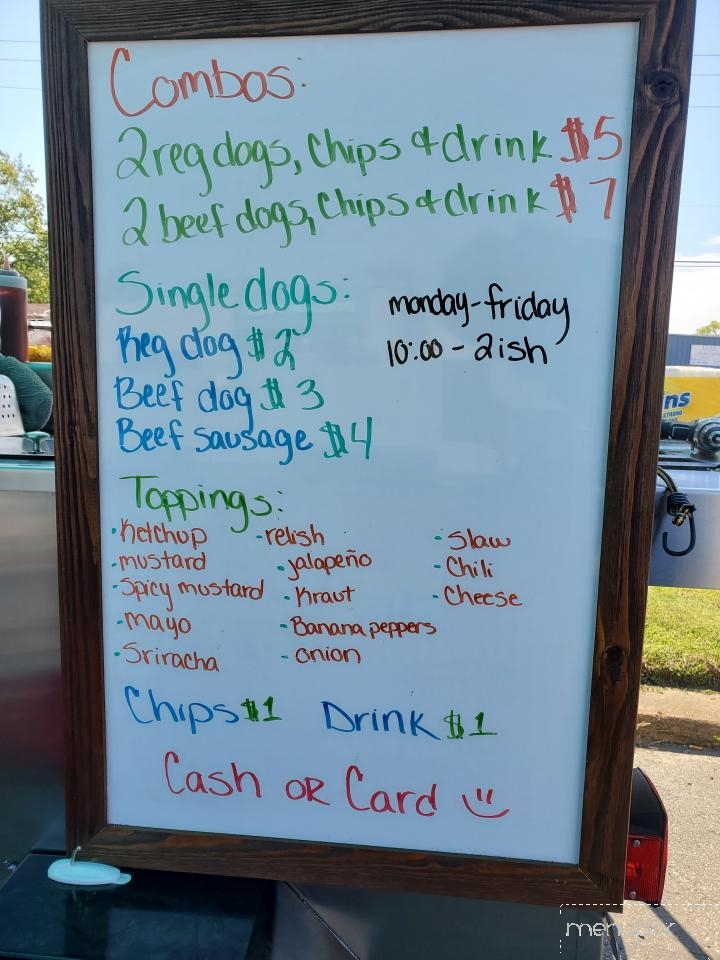 Combos:
2 reg dogs, Chips & drink $5
2 beef dogs, Chips & drink $7
Single dogs:
Reg dog $2
Beef dog $3
Beef sausage $4
monday-friday
10:00 - 2ish
Toppings:
· Ketchup
· mustard
· Spicy mustard
· mayo
· Sriracha
· relish
· jalapeño
· Kraut
· Banana peppers
· onion
· Slaw
· Chili
· Cheese
Chips $1 Drink $1
Cash or Card
ns
STRONG